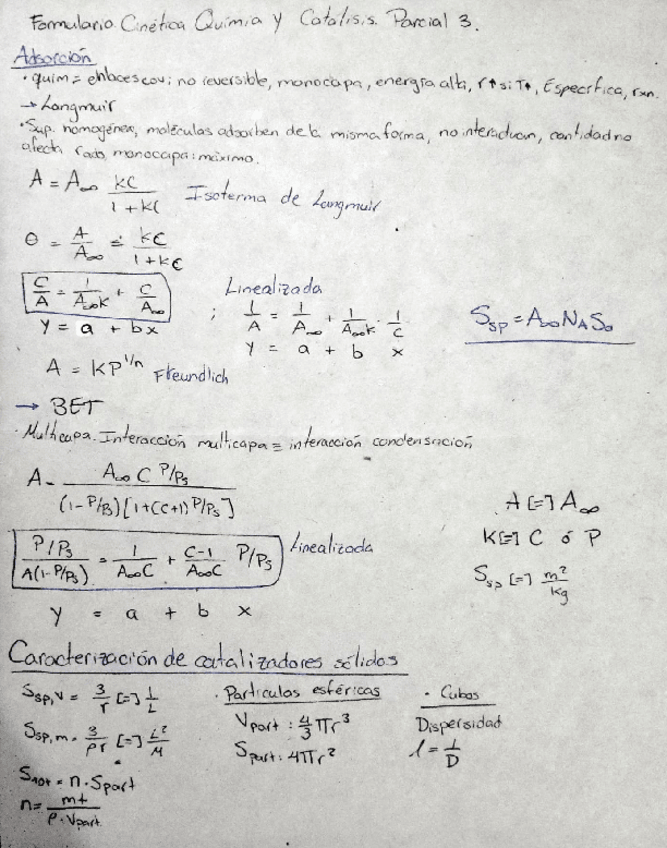 Formulario Cinética Química y Catálisis. Parcial 3.
Adsorción
· quim = enlaces cov; no reversible, monocapa, energía alta, r↑ si T↑, Específica, rxn.
→ Langmuir
· Sup. homogénea, moléculas adsorben de la misma forma, no interactuan, cantidad no
afecta rads, monocapa: máximo.
A = A∞ kC / 1 + kC Isoterma de Langmuir
θ = A / A∞ = kC / 1 + kC
C / A = 1 / A∞k + C / A∞ ; Linealizada 1 / A = 1 / A∞ + 1 / A∞k · 1 / C
y = a + b x y = a + b x
Ssp = A∞ NA S0
A = KP^1/n Freundlich
→ BET
· Multicapa. Interacción multicapa = interacción condensación
A = A∞ C P/Ps / (1-P/Ps)[1+(C+1)P/Ps]
P/Ps / A(1-P/Ps) = 1 / A∞C + C-1 / A∞C P/Ps Linealizada
y = a + b x
A [=] A∞
K [=] C ó P
Ssp [=] m² / kg
Caracterización de catalizadores sólidos
Ssp,v = 3 / r [=] 1 / L
Ssp,m = 3 / ρr [=] L² / M
Stot = n · Spart
n = mt / ρ · Vpart
· Particulas esféricas
Vpart : 4/3 πr³
Spart : 4πr²
· Cubos
Dispersidad
l = 1 / D